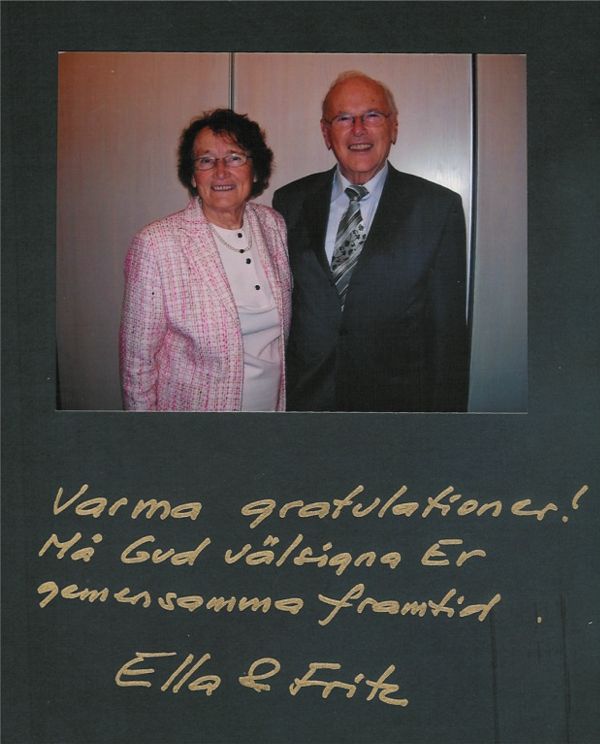 Varma gratulationer!
Må Gud välsigna Er
gemensamma framtid.
Ella & Fritz